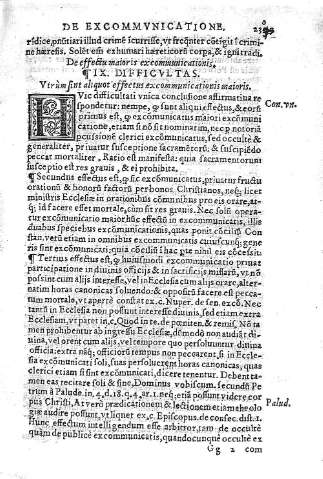 DE EXCOMMVNICATIONE.
ridice, pnũtiari illud crimẽ icurrisse, vt freq̃nter cõtigit ĩ crimi-
ne hæresis. Solẽt ẽsi exhumari hæreticorũ corpa, & igni tradi.
De effectu maioris excommunicationis.
¶ IX. DIFFICVLTAS.
Vtrũm sint aliquot effectus excommunicationis maioris.
HVic difficultati vnica conclusione affirmatiua re
spondetur: nempe, ꝙ sunt aliqui effectus, & eorũ
primus est, ꝙ excommunicatus maiori excõmuni
catione, etiam si nõ sit nominatim, nec ꝑ notoriã
percussionẽ clerici excõmunicatus, sed occultè &
generaliter, priuatur susceptione sacramẽtorũ, & suscipiẽdo
peccat mortaliter. Ratio est manifesta: quia sacramentorum
susceptio est res grauis, & ei prohibita.
¶ Secundus effectus est, ꝙ sic excõmunicatus, priuatur fructu
orationũ & honorũ factorũ per bonos Christianos, neq; licet
ministris Ecclesiæ in orationibus cõmunibus pro eis orare, at-
q; id facere esset mortale, cùm sit res grauis. Nec solũ opera-
tur excõmunicatio maior hũc effectũ in excõmunicatis, illis
duabus speciebus excõmunicationis, quas ponit cõciliũ Con
stan. verũ etiam in omnibus excommunicatis cuiuscunq; gene
ris sint excommunicati; quia cõciliũ ĩ hac pte nihil eis cõcessit.
¶ Tertius effectus est, ꝙ huiusmodi excommunicatio priuat
participatione in diuinis officijs & in sacrificijs missarũ, vt nõ
possint cum alijs interesse, vel in Ecclesia cum alijs orare, alter-
natim horas canonicas soluendo: & oppositũ facere est pecca-
tum mortale, vt apertè constat ex c. Nuper. de sen. exco. Nec
tantũ in Ecclesia non possunt interesse diuinis, sed etiam extra
Ecclesiam, vt patet in, c. Quod in te. de pœniten. & remiss. Nõ ta
men prohibentur ab ingressu Ecclesiæ, dũmodo non audiãt di-
uina, vel orent cum alijs, vel tempore quo persoluuntur diuina
officia: extra nãq; officiorũ tempus non peccarent, si in Eccle-
sia excõmunicati soli, suas persoluerẽt horas canonicas, quas
clerici etiam si sint excommunicati, dicere tenentur. Debent ta-
men eas recitare soli & sine, Dominus vobiscum. secundũ Pe
trum à Palude. in. 4. d. 18. q. 4. ar. 1.
pus Christi. At verò prædicationem & lectionem etiam eolo
giæ audire possunt, vt liquet ex. c. Episcopus. de consec. dist. 1.
Hunc effectum intelligendum esse arbitror, tam de occultè
quàm de publicè excommunicatis, quandocunque occultè ex
Gg 2 com
Con. vn.
Palud.